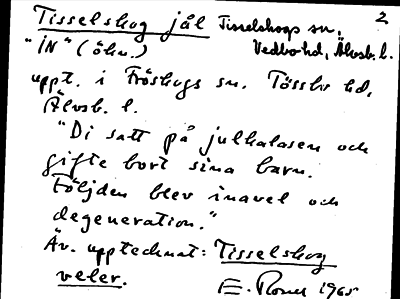 2
Tisselskog jål Tisselskogs sn,
"ÏN" (öhn.) Vedbo hd, Älvsb. l.
uppt. i Fröskogs sn. Tössbo hd,
Älvsb. l.
"Di satt på julkalasen och
gifte bort sina barn.
Följden blev inavel och
degeneration."
Äv. upptecknat: Tisselskog
veler. E. 1965